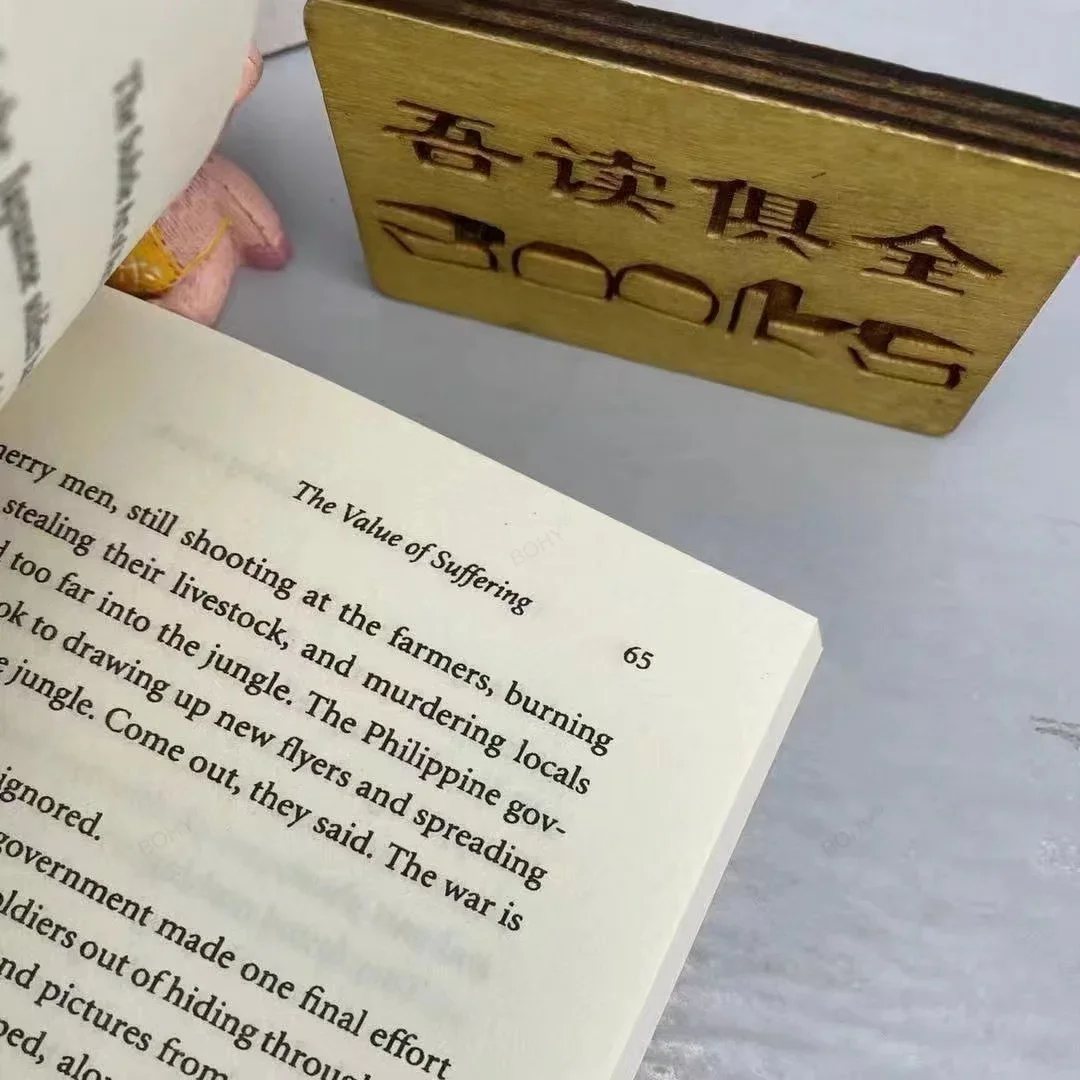 吾读俱全
BOOKS
The Value of Suffering
65
men, still shooting at the farmers, burning
stealing their livestock, and murdering locals
too far into the jungle. The Philippine gov-
to drawing up new flyers and spreading
jungle. Come out, they said. The war is
ignored.
government made one final effort
out of hiding through
pictures from
BOHY
BOHY
BOHY